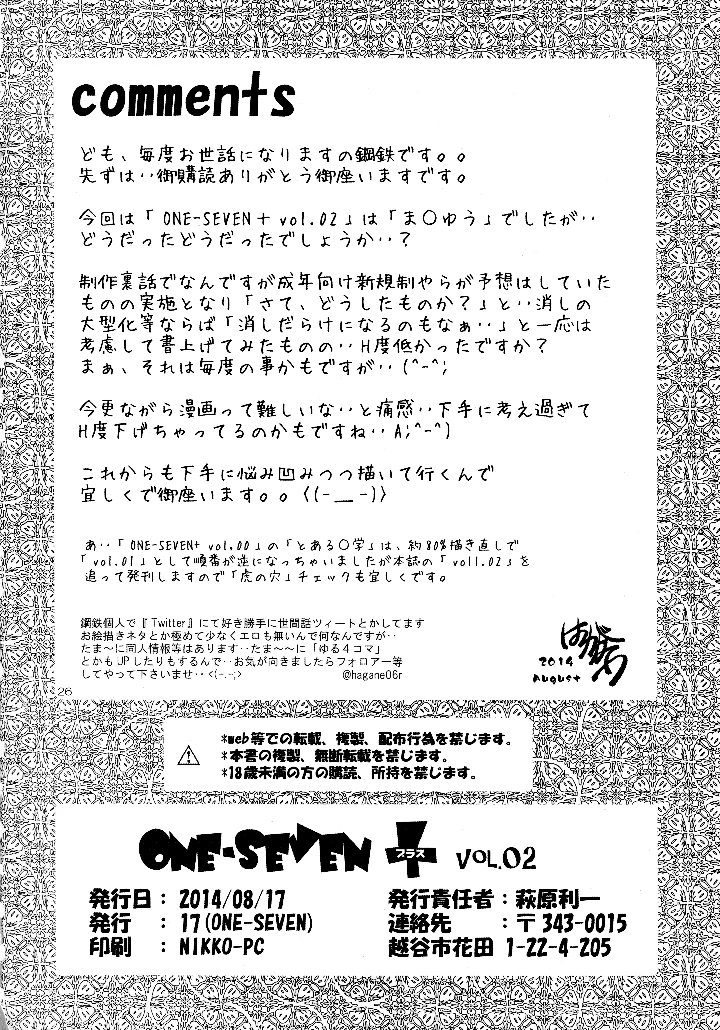 comments
ども、毎度お世話になりますの鋼鉄です。。
先ずは‥御購読ありがとう御座いますです。
今回は「 ONE-SEVEN＋ vol.02」は「ま〇ゆう」でしたが‥
どうだったどうだったでしょうか‥？
制作裏話でなんですが成年向け新規制やらが予想はしていた
ものの実施となり「さて、どうしたものか？」と‥消しの
大型化等ならば「消しだらけになるのもなぁ‥」と一応は
考慮して書上げてみたものの‥H度低かったですか？
まぁ、それは毎度の事かもですが‥(^-^;
今更ながら漫画って難しいな‥と痛感‥下手に考え過ぎて
H度下げちゃってるのかもですね‥A;^-^)
これからも下手に悩み凹みつつ描いて行くんで
宜しくで御座います。。<(-__-)>
あ‥「 ONE-SEVEN+ vol.00」の「とある〇学」は、約80%描き直しで
「 vol.01」として順番が逆になっちゃいましたが本誌の「 voll.02」を
追って発刊しますので「虎の穴」チェックも宜しくです。
鋼鉄個人で『Twitter』にて好き勝手に世間話ツィートとかしてます
お絵描きネタとか極めて少なくエロも無いんで何なんですが‥
たま～に同人情報等はあります‥たま～～に「ゆる４コマ」
とかもUPしたりもするんで‥お気が向きましたらフォロアー等
してやって下さいませ‥<(-.-;> @hagane06r
はがねや
2014
August
26
*web等での転載、複製、配布行為を禁じます。
*本書の複製、無断転載を禁じます。
*18歳未満の方の購読、所持を禁じます。
ONE-SEVEN＋ プラス VOL.02
発行日：2014/08/17
発行：17(ONE-SEVEN)
印刷：NIKKO-PC
発行責任者：萩原利一
連絡先：〒343-0015
越谷市花田 1-22-4-205